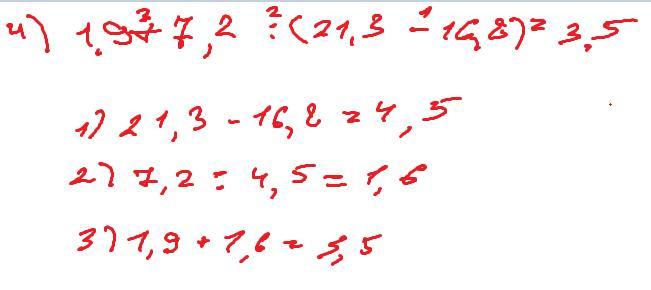 4) 1,9 + 7,2 : (21,3 - 16,8) = 3,5
1) 21,3 - 16,8 = 4,5
2) 7,2 : 4,5 = 1,6
3) 1,9 + 1,6 = 3,5